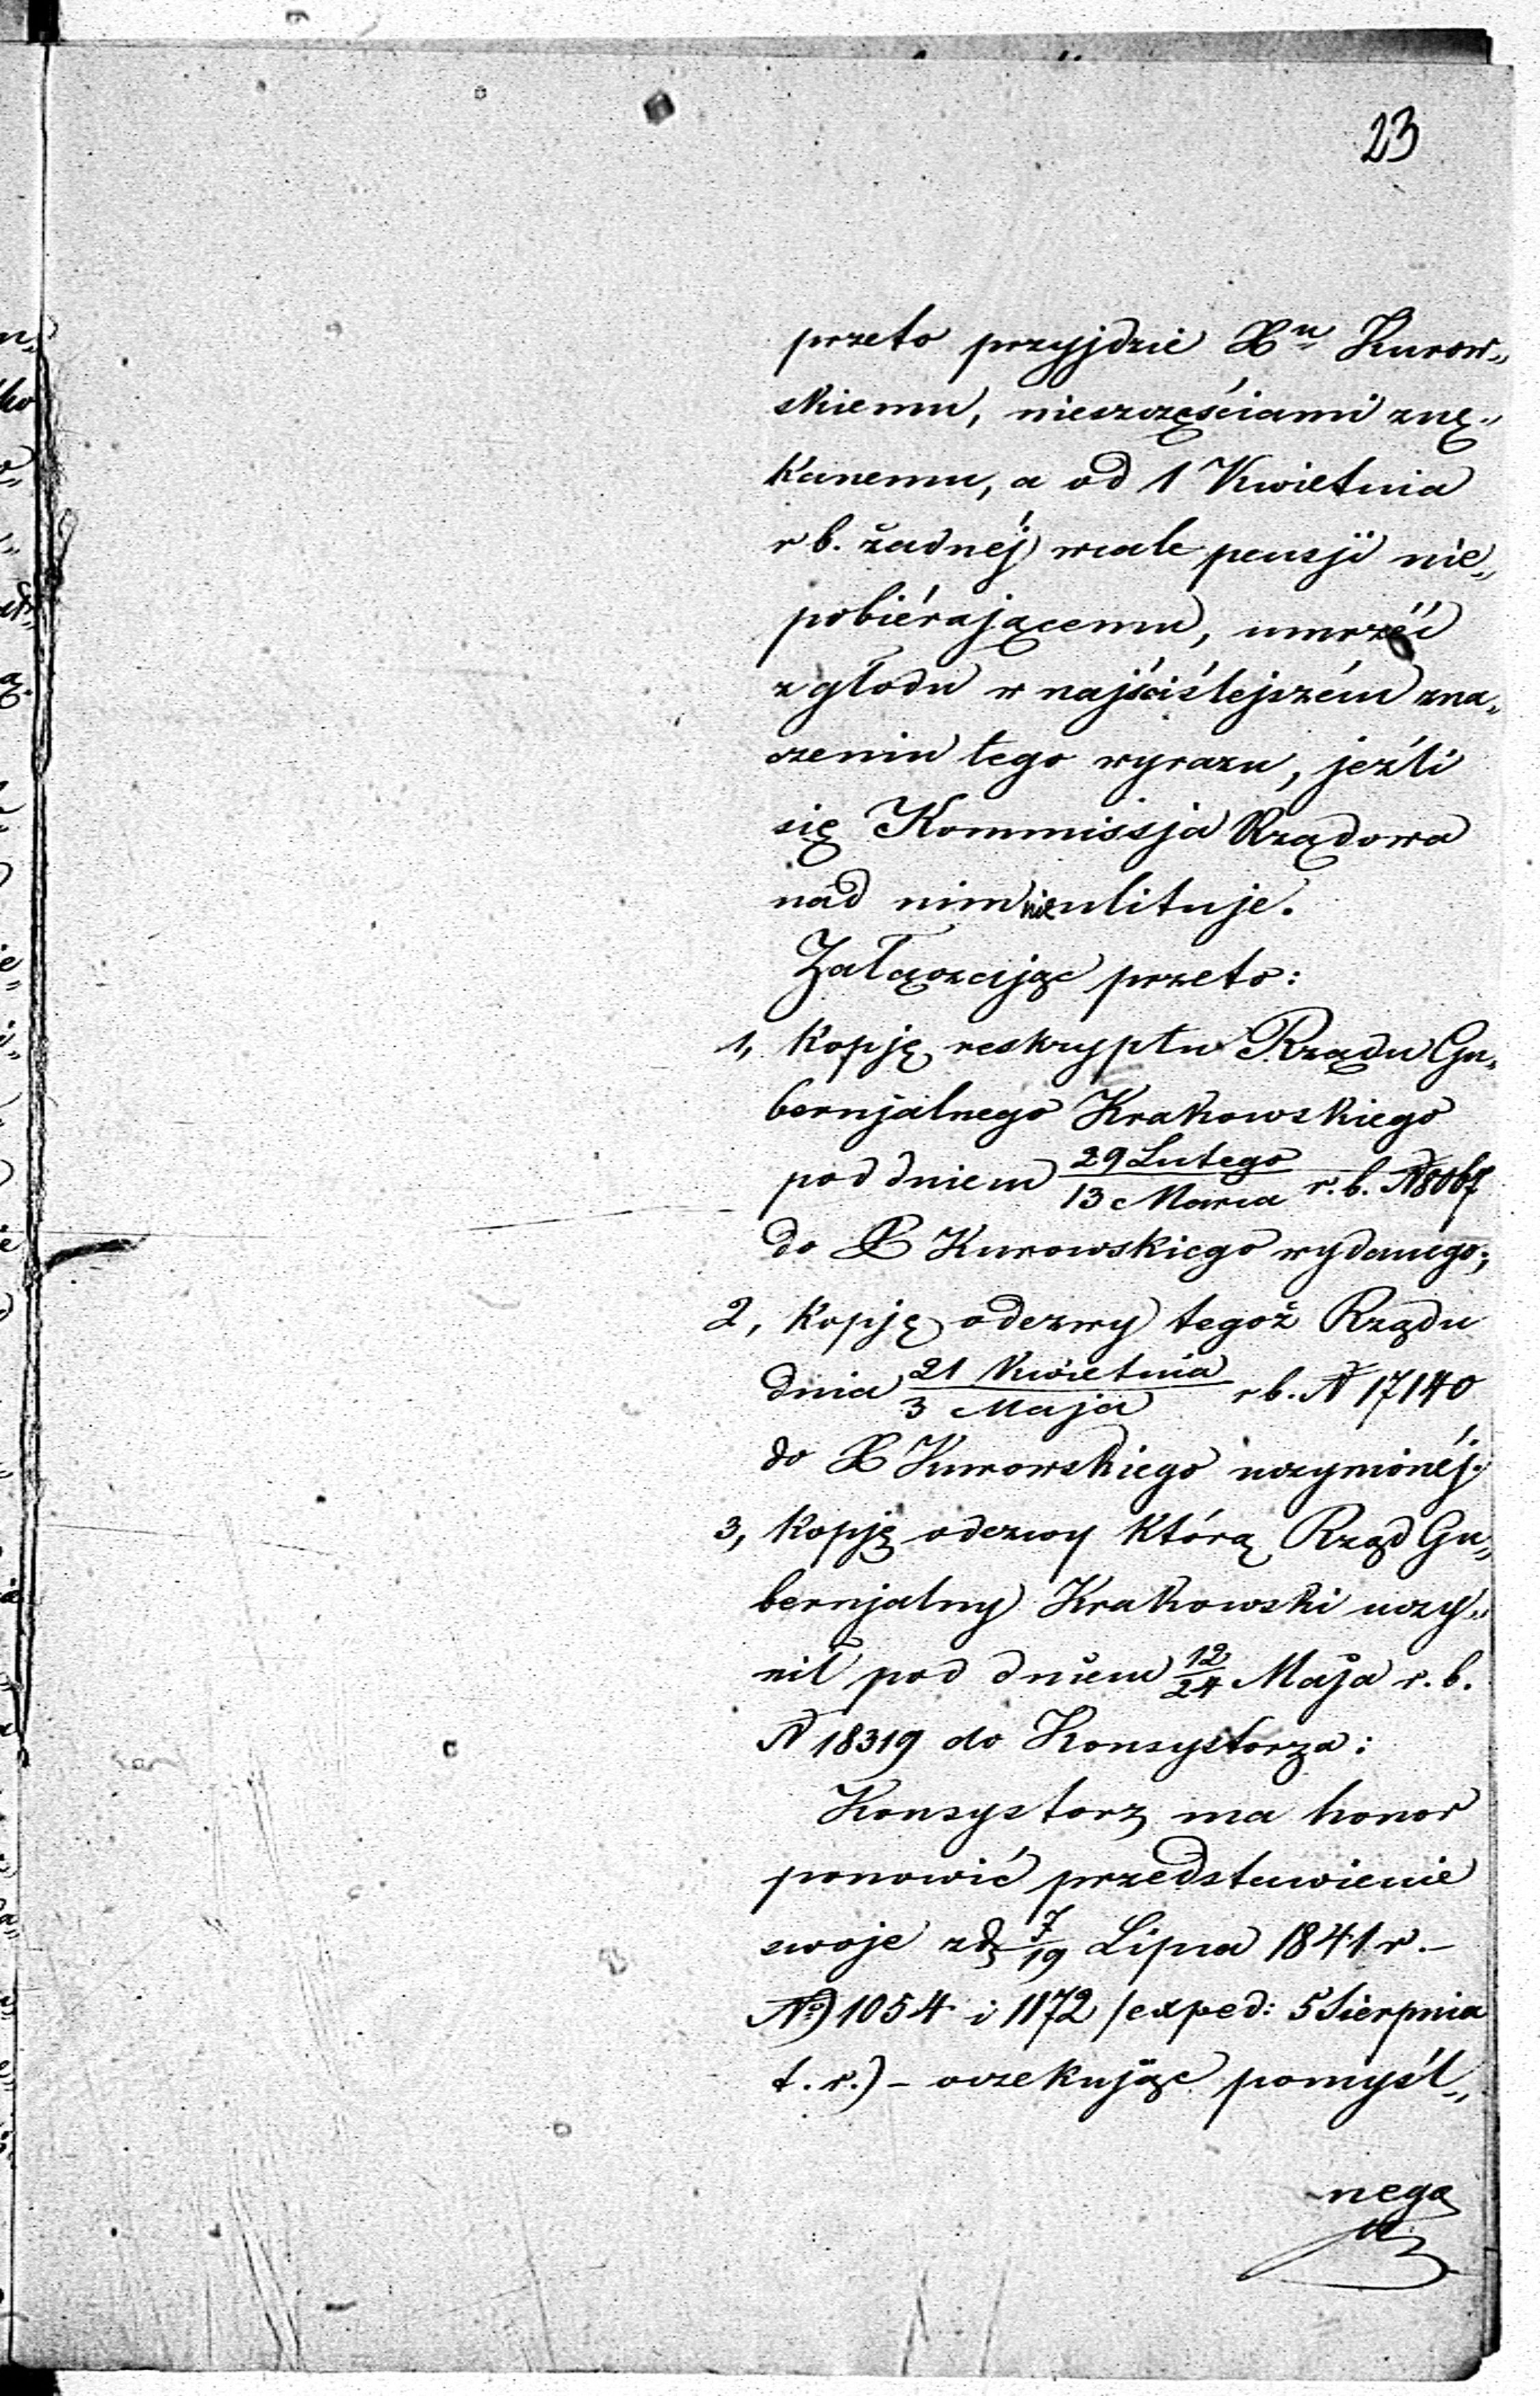 23
przeto przyjdzie Xu Kurow„
skiemu, nieszczęściami znę„
kanemu, a od 1 Kwietnia
r b. żadnéj wcale pensji nie„
pobiérającemu, umrzéć
z głodu w najściślejszém zna„
czeniu tego wyrazu, jeźli
się Kommissja Rządowa
nad nim nie ulituje.
Załączając przeto:
1, Kopję reskryptu Rządu Gu„
bernjalnego Krakowskiego
pod dniem 29 Lutego / 13 Marca r. b. N 8067
do X Kurowskiego wydanego;
2, Kopję odezwy tegoż Rządu
dnia 21 Kwietnia / 3 Maja r b. N 17140
do X Kurowskiego uczynionéj;
3, Kopję odezwy którą Rząd Gu„
bernjalny Krakowski uczy„
nił pod dniem 12/24 Maja r. b.
N 18319 do Konsystorza:
Konsystorz ma honor
ponowić przedstawienie
swoje z d. 7/19 Lipca 1841 r. –
No) 1054 i 1172 /exped: 5 Sierpnia
t. r.) – oczekując pomyśl„
nego